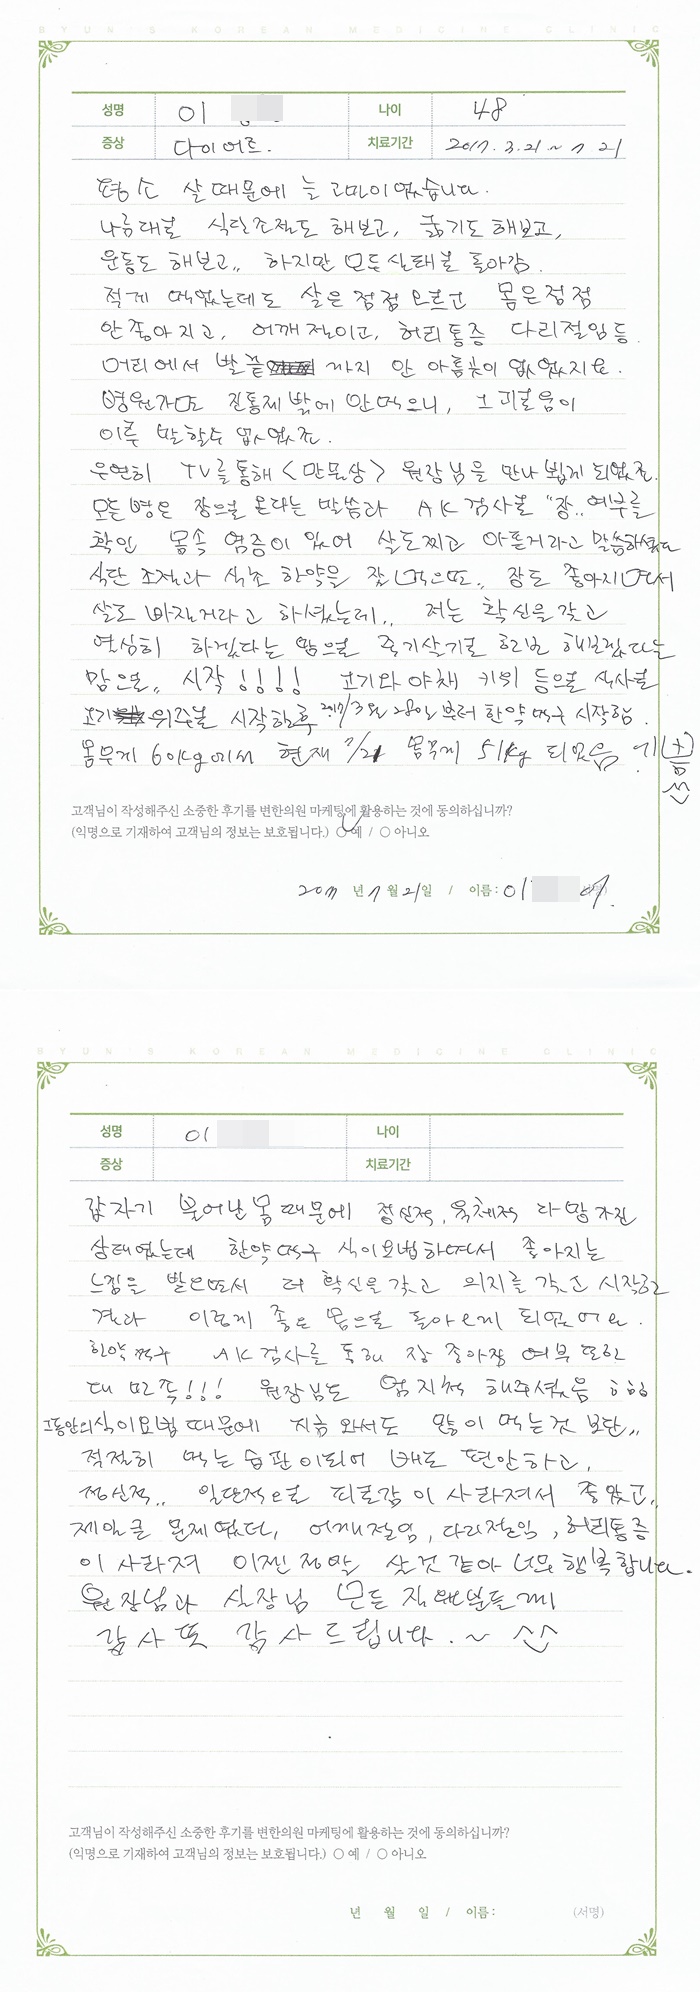 BYUN'S KOREAN MEDICINE CLINIC
성명 이 나이 48
증상 다이어트. 치료기간 2017. 3. 21 ~ 7 21
평소 살 때문에 늘 고민이었습니다.
나름대로 식단조절도 해보고, 굶기도 해보고,
운동도 해보고,, 하지만 모든 상태로 돌아감.
적게 먹었는데도 살은 점점 오르고 몸은 점점
안 좋아지고, 어깨 절이고, 허리통증 다리절임 등
머리에서 발끝 까지 안 아픔곳이 없었지요.
병원가도 진통제 밖에 안먹으니, 그 괴로움이
이루 말할수 없었죠.
우연히 TV를 통해 <만물상> 원장님을 만나 뵙게 되었죠.
모든 병은 장으로 온다는 말씀과 AK검사로 "장,, 여부를
확인 몸속 염증이 있어 살도찌고 아픈거라고 말씀하셨고
식단 조절과 식초 한약을 잘 먹으며,, 장도 좋아지면서
살도 빠질거라고 하셨는데,, 저는 확신을 갖고
열심히 하겠다는 맘으로 죽기살기로 한번 해보겠다는
맘으로,, 시작!!!! 고기와 야채 키위 등으로 식사를
고기 위주로 시작한후 2017/3월 28일부터 한약 먹구 시작함.
몸무게 60kg에서 현재 7/21 몸무게 51kg 되었음
고객님이 작성해주신 소중한 후기를 변한의원 마케팅에 활용하는 것에 동의하십니까?
(익명으로 기재하여 고객님의 정보는 보호됩니다.) ○ 예 / ○ 아니오
2017 년 7 월 21 일 / 이름: 이 (서명)
BYUN'S KOREAN MEDICINE CLINIC
성명 이 나이
증상 치료기간
갑자기 불어난 몸 때문에 정신적, 육체적 다 망가진
상태였는데 한약먹구 식이요법하면서 좋아지는
느낌을 받으면서 더 확신을 갖고 의지를 갖고 시작한
결과 이렇게 좋은 몸으로 돌아오게 되었어요.
한약 먹구 AK검사를 통해 장 좋아짐 여부 또한
대 만족!!! 원장님도 엄지척 해주셨음 ㅎㅎㅎ
그동안의 식이요법 때문에 지금 와서도 많이 먹는것 보단,,
적절히 먹는 습관이되어 배도 편안하고,
정신적,, 일단적으로 피로감이 사라져서 좋았고,,
제일 큰 문제였던, 어깨절임, 다리절임, 허리통증
이 사라져 이젠 정말 살것 같아 너무 행복합니다.
원장님과 실장님 모든 직원분들께
감사또 감사드립니다. ~ ^^
고객님이 작성해주신 소중한 후기를 변한의원 마케팅에 활용하는 것에 동의하십니까?
(익명으로 기재하여 고객님의 정보는 보호됩니다.) ○ 예 / ○ 아니오
년 월 일 / 이름: (서명)